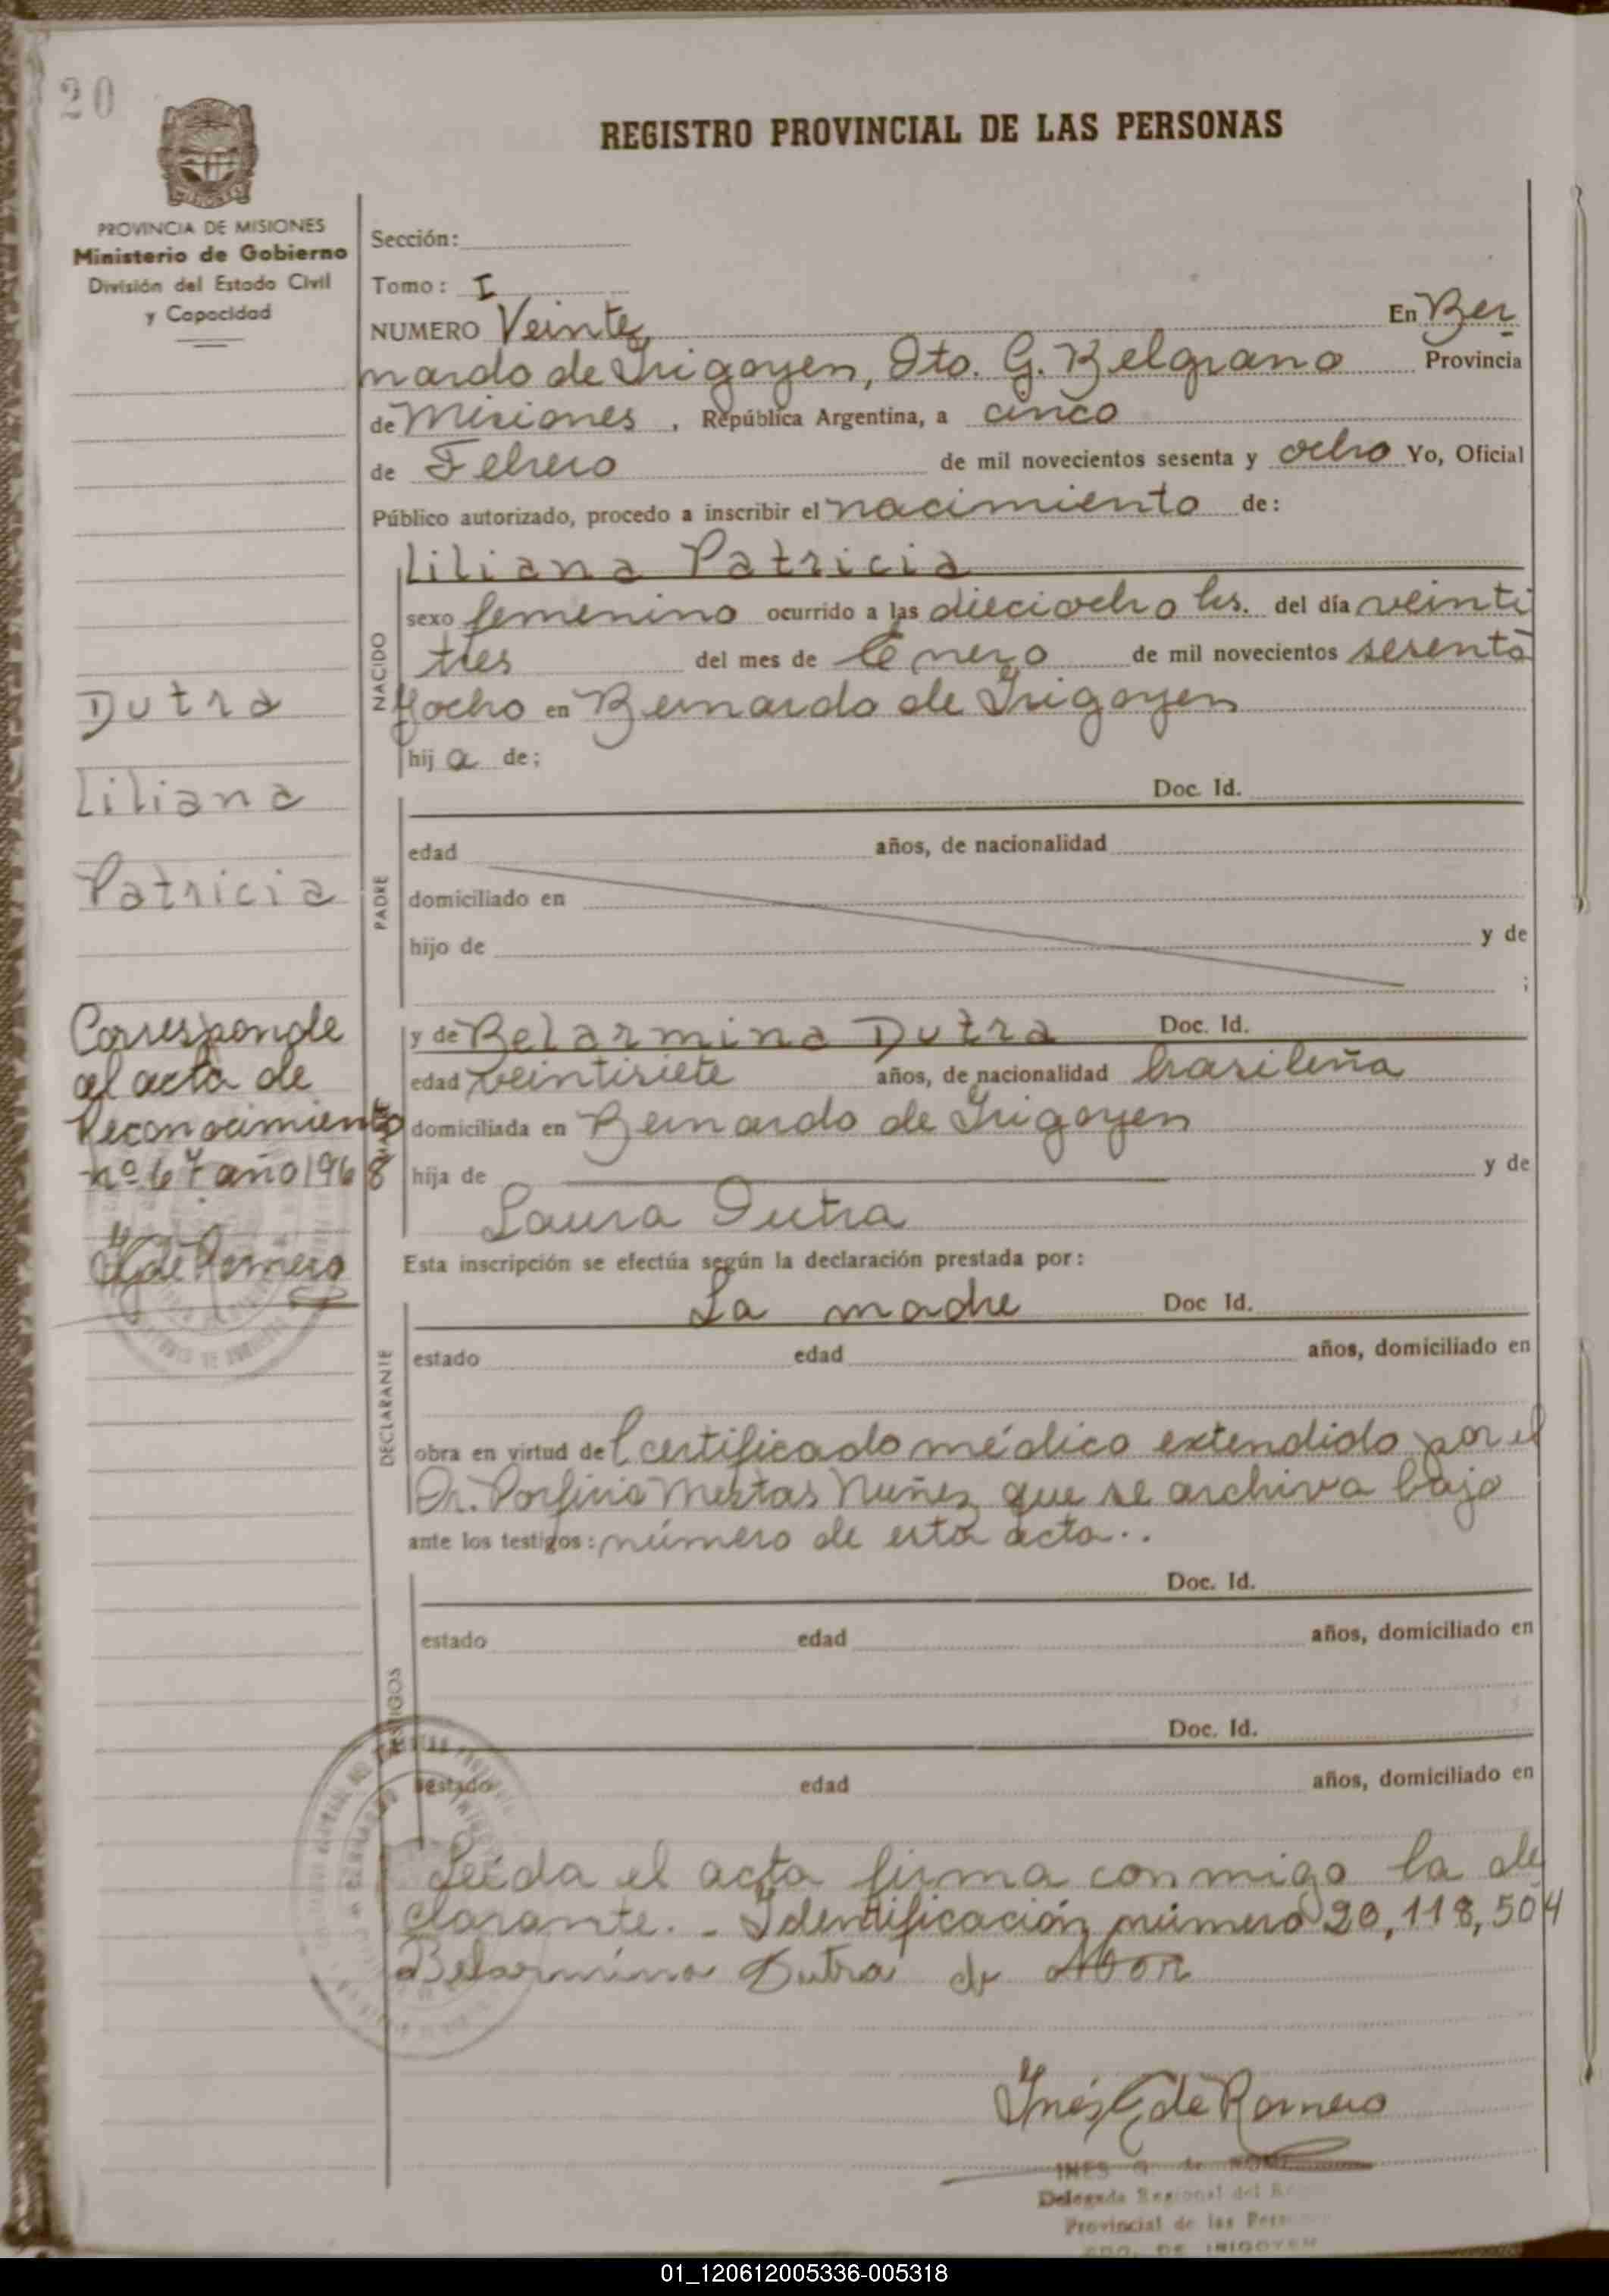 20
REGISTRO PROVINCIAL DE LAS PERSONAS
MISIONES
PROVINCIA DE MISIONES
Ministerio de Gobierno
División del Estado Civil
y Capacidad
Sección:
Tomo: I
NUMERO Veinte En Ber
nardo de Irigoyen, Dto. G. Belgrano Provincia
de Misiones, República Argentina, a cinco
de Febrero de mil novecientos sesenta y ocho Yo, Oficial
Público autorizado, procedo a inscribir el nacimiento de:
NACIDO
Liliana Patricia
sexo femenino ocurrido a las dieciocho hs. del día veinti
tres del mes de Enero de mil novecientos sesenta
y ocho en Bernardo de Irigoyen
hij a de;
Dutra
Liliana
Patricia
PADRE
Doc. Id.
edad años, de nacionalidad
domiciliado en
hijo de y de
;
Corresponde
al acta de
Reconocimiento
nº 67 año 1968
G de Romero
y de Belarmina Dutra Doc. Id.
edad veintisiete años, de nacionalidad brasileña
domiciliada en Bernardo de Irigoyen
hija de y de
Laura Dutra
Esta inscripción se efectúa según la declaración prestada por:
DECLARANTE
La madre Doc Id.
estado edad años, domiciliado en
obra en virtud del certificado médico extendido por el
Dr. Porfirio Mestas Nuñez que se archiva bajo
ante los testigos: número de esta acta..
TESTIGOS
Doc. Id.
estado edad años, domiciliado en
Doc. Id.
estado edad años, domiciliado en
Leída el acta firma conmigo la de
clarante.- Identificación número 20,118,504
Belarmina Dutra de
Inés G de Romero
INES G. de
Delegada Regional del
Provincial de las
BDO. DE IRIGOYEN
01_120612005336-005318